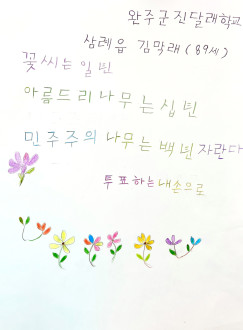 완주군진달래학교
삼례읍 김막래(89세)
꽃씨는 일년
아름드리나무는십년
민주주의 나무는백년자란다
투표하는내손으로